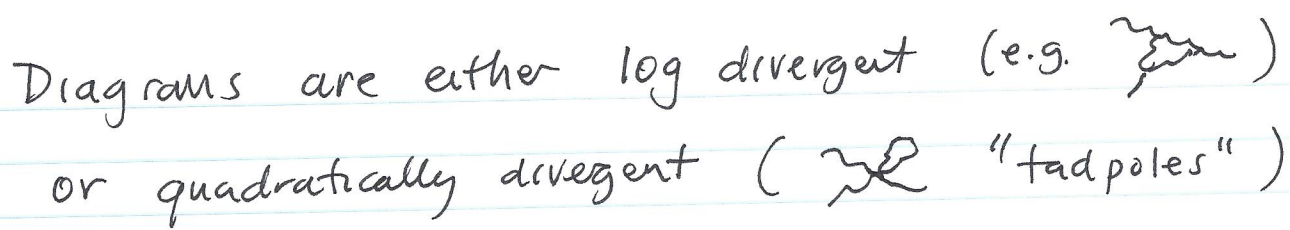 Diagrams are either log divergent (e.g. )
or quadratically divegent ( "tadpoles" )